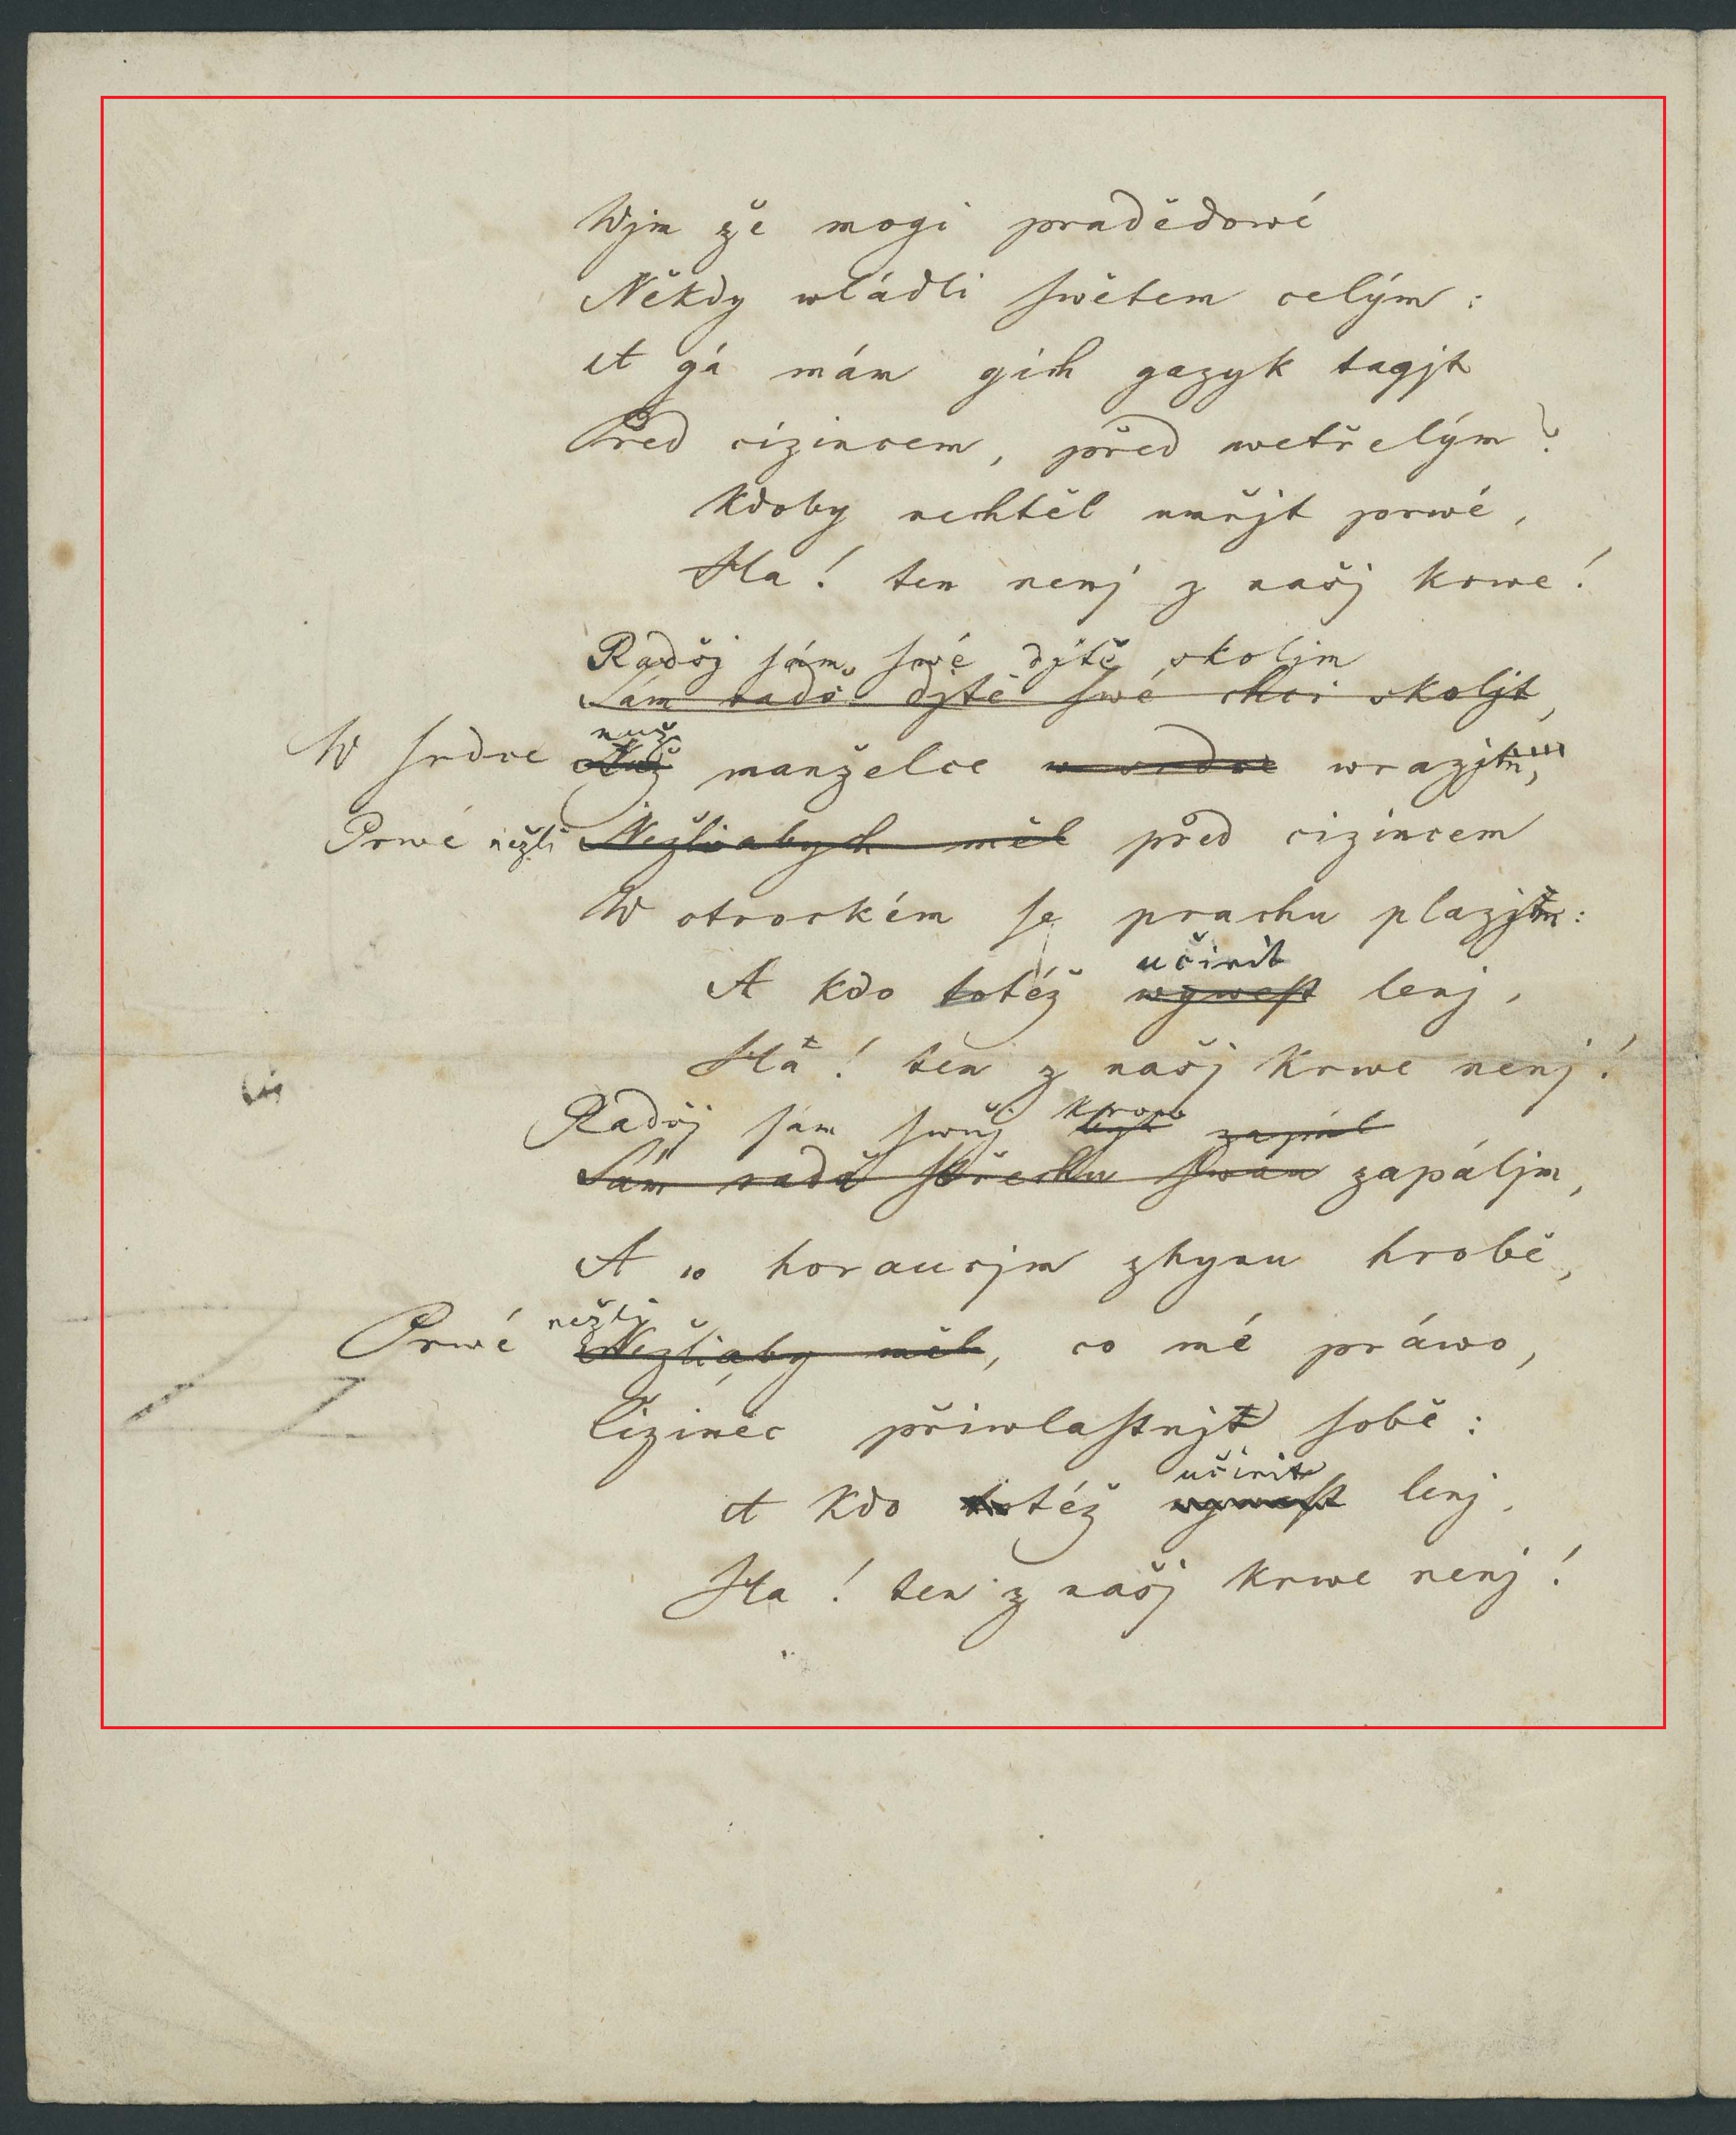 Wjm že mogi pradědowé
Někdy wládli swětem celým:
A gá mám gich gazyk tagjt
Před cizincem, před wetřelým?
Kdoby nechtěl umřjt prwé,
Ha! ten nenj z našj krwe!
Radšj sám swé djtě skoljm
Sám radš djtě swé chci skoljt,
W srdce nůž
Nůž manželce w srdce wrazjm,
Prwé nežli Nežliabych měl před cizincem
W otrockém se prachu plazjm:
učinit
A kdo totéž wywest lenj,
Ha! ten z našj krwe nenj!
Radšj sám swůj krow zapál
Sám radš střechu swau zapáljm,
A w horaucjm zhynu hrobě,
Prwé nežli
Nežliaby měl, co mé práwo,
Cizinec přiwlastnjt sobě:
učinit
A kdo totéž wywest lenj,
Ha! ten z našj krwe nenj!